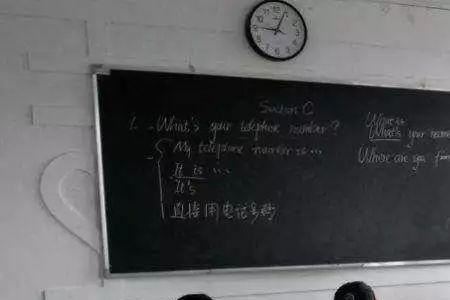 Section C
1. - What's your telephone number?
- My telephone number is ...
It is ...
It's
直接用电话号码
What is
What's your name
Where are you from